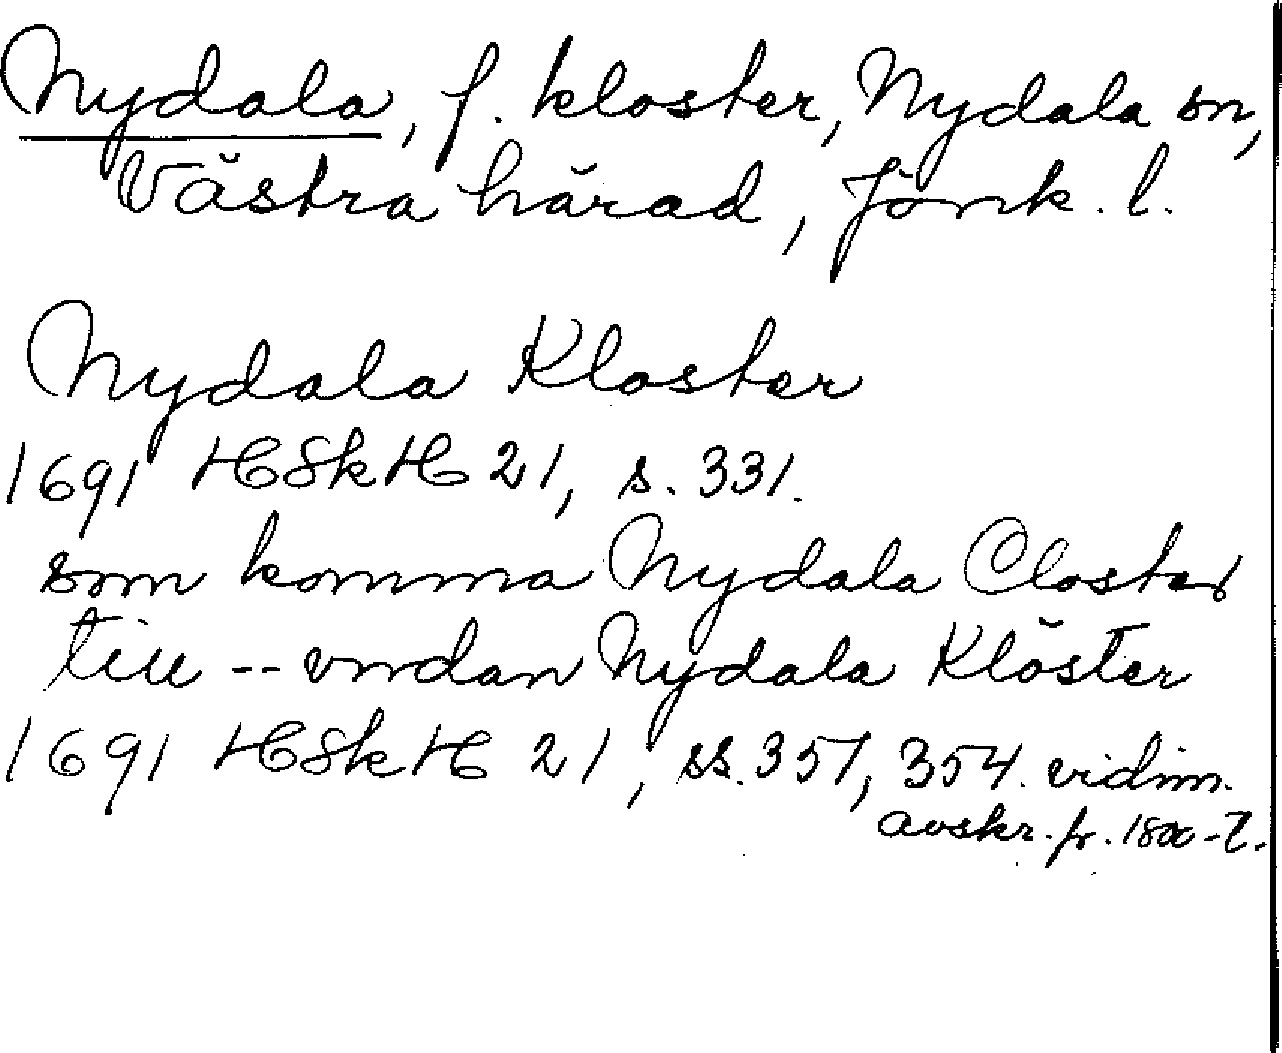 Nydala, f. kloster, Nydala sn,
Västra härad, Jönk. l.
Nydala Kloster
1691 HSkH 21, s. 331.
som komma Nydala Closter
till -- vndan Nydala Klöster
1691 HSkH 21, ss. 351, 354. vidim.
avskr. fr. 1800-t.